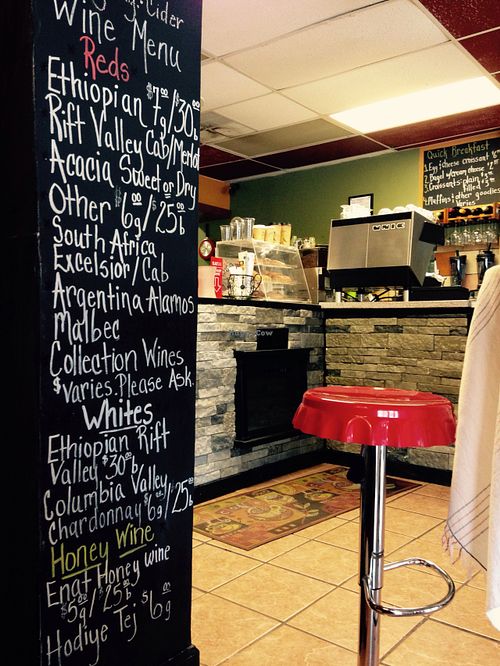 Cider
Wine Menu
Reds
Ethiopian $7g/$30b
Rift Valley Cab/Merlot
Acacia Sweet or Dry
Other $6g/$25b
South Africa
Excelsior/Cab
Argentina Alamos
Malbec
Collection Wines
$varies. Please Ask.
Whites
Ethiopian Rift
Valley $30b
Columbia Valley
Chardonnay $6g/$25b
Honey Wine
Enat Honey wine
$5g/$25b
Hodiye Tej $6g
Quick Breakfast
1. Egg & cheese croissant
2. Bagel w/cream cheese
3. Croissants-plain,
filled
4. Muffins & other goodies
Varies